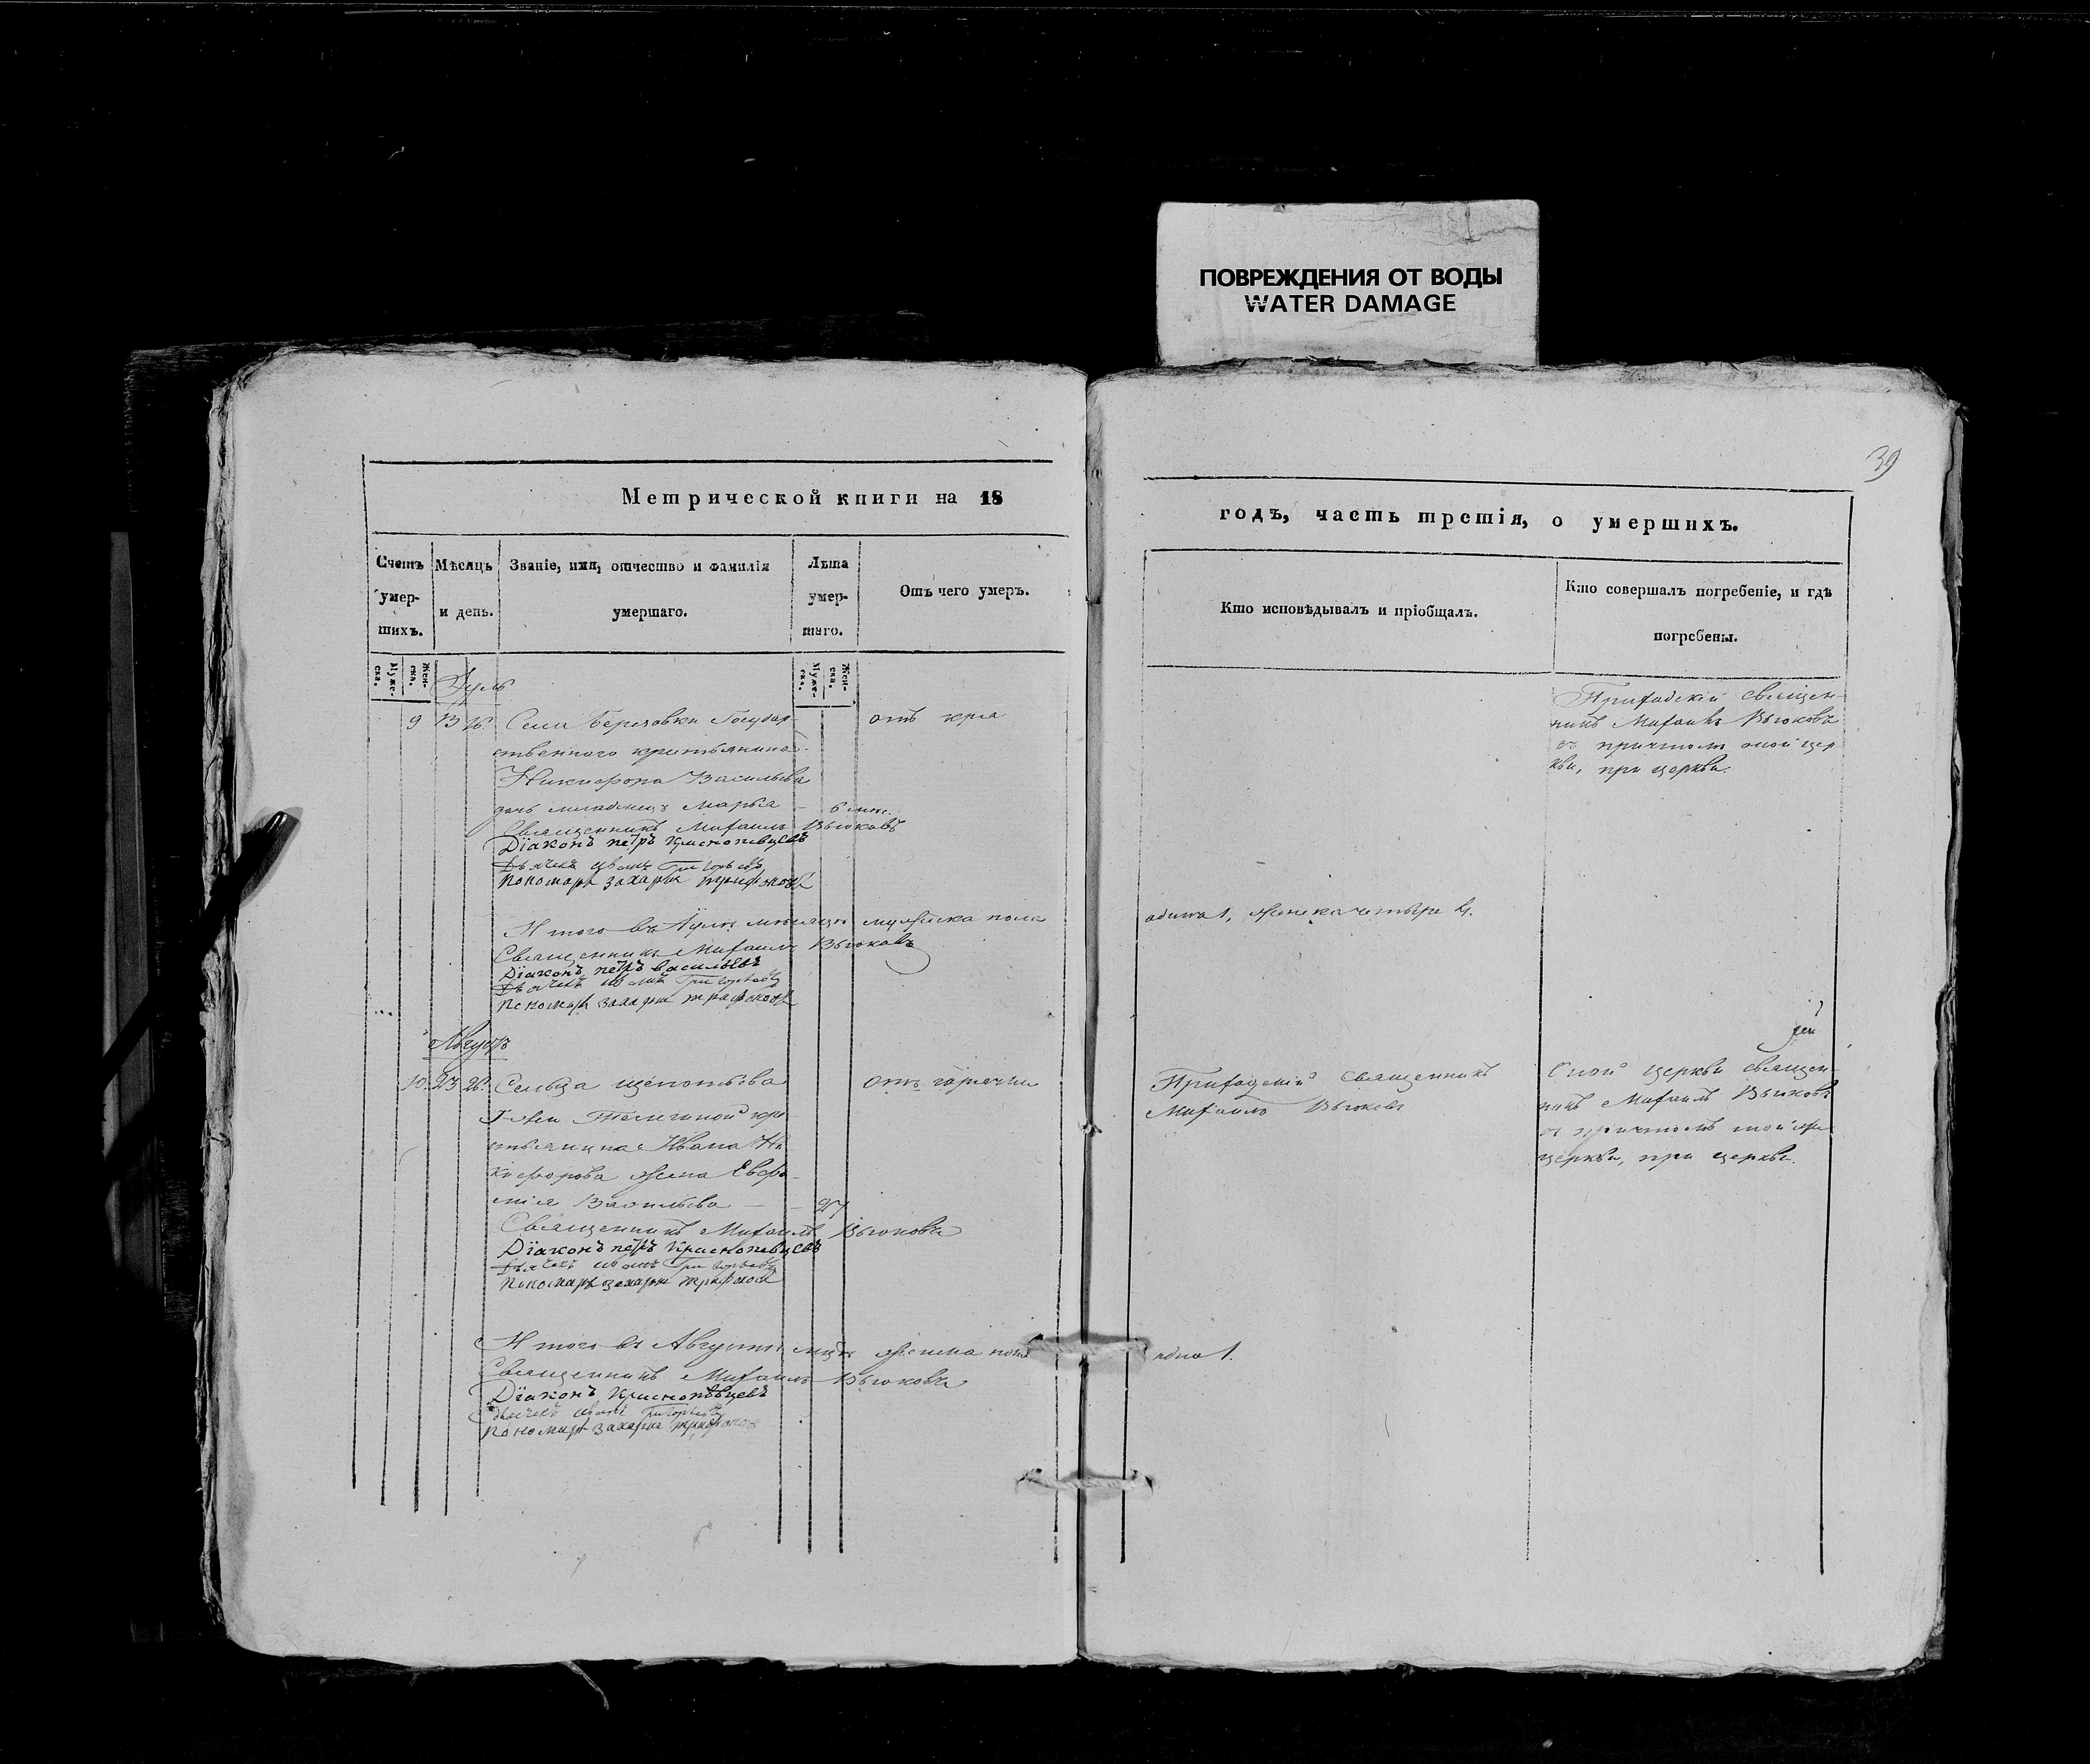 ПОВРЕЖДЕНИЯ ОТ ВОДЫ
WATER DAMAGE
39
Метрической книги на 18
годъ, часть третія, о умершихъ.
Счетъ умер-шихъ.
Мѣсяцъ и день.
Званіе, имя, отчество и фамилія умершаго.
Лѣта умер-шаго.
Отъ чего умеръ.
Кто исповѣдывалъ и пріобщалъ.
Кто совершалъ погребеніе, и гдѣ погребены.
Муже-ска.
Жен-ска.
Муже-ска.
Жен-ска.
9 13
Села Березовки Государ-
ственного крестьянина
Никифора Васильева
дочь младенецъ Марья
6 мѣс.
отъ
Приходскій священ-
никъ Михаилъ Вьюковъ
съ причтомъ оной цер
кви, при церкви.
Священникъ Михаилъ Вьюковъ
Діаконъ петръ Краснопевцевъ
Дьячекъ Григорьевъ
Пономарь захаръ трифоновъ
Итого въ Іулѣ мѣсяцѣ мужеска пола
одинъ 1, женска четыре 4.
Священникъ Михаилъ Вьюковъ
Діаконъ петръ васильевъ
Дьячекъ Григорьевъ
Пономарь захаръ трифоновъ
Августъ
10. 23 26.
Сельца Щепотьева
Г-жи Телегиной кре-
стьянина Ивана Ни
кифорова жена Евфи
мія Васильева
27
отъ горячки
Приходскій священникъ
Михаилъ Вьюковъ
Оной церкви священ-
никъ Михаилъ Вьюковъ
съ причтомъ той же
церкви, при церкви.
Священникъ Михаилъ Вьюковъ
Діаконъ петръ Краснопевцевъ
Дьячекъ Григорьевъ
Пономарь захаръ трифоновъ
Итого въ Августѣ мцѣ женска пола
одна 1.
Священникъ Михаилъ Вьюковъ
Діаконъ Краснопѣвцевъ
дьячекъ Григорьевъ
Пономарь захаръ трифоновъ